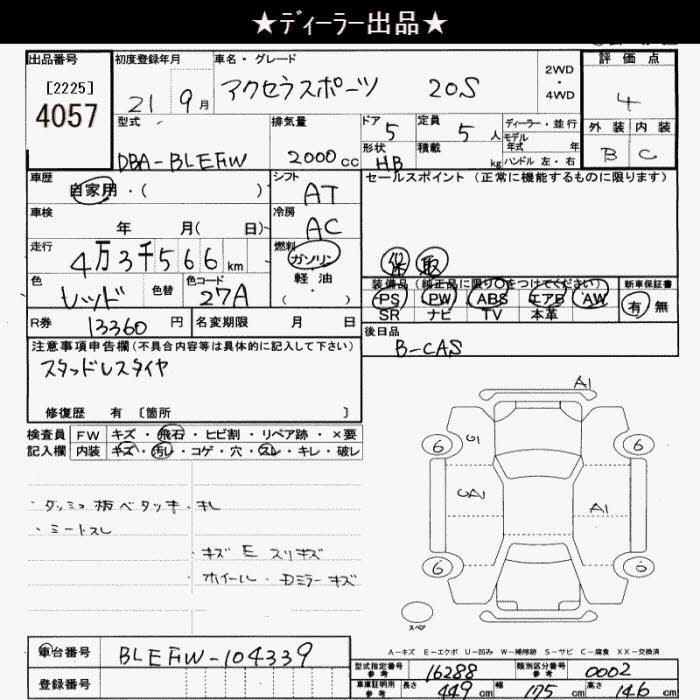 ★ディーラー出品★
出品番号
[2225]
4057
初度登録年月
21 9月
車名・グレード
アクセラスポーツ 20S
2WD
・
4WD
評価点
4
外装 内装
B C
型式
DBA-BLEFW
排気量
2000cc
ドア 5
形状 HB
定員 5人
積載 kg
ディーラー・並行
モデル
年式 年
ハンドル 左・右
車歴
自家用・( )
シフト
AT
セールスポイント (正常に機能するものに限ります)
保 取
車検
年 月( 日)
冷房
AC
走行
4万3千566km
燃料
ガソリン
軽油
( ・ )
色
レッド
色替
色コード
27A
装備品 (純正品に限り○をつけてください)
PS PW ABS エアB AW
SR ナビ TV 本革
新車保証書
有 無
R券 13360円
名変期限 月 日
後日品
B-CAS
注意事項申告欄(不具合内容等は具体的に記入して下さい)
スタッドレスタイヤ
修復歴 有 〔箇所 〕
検査員
記入欄
FW キズ・飛石・ヒビ割・リペア跡・×要
内装 キズ・汚レ・コゲ・穴・スレ・キレ・破レ
・ダッシュ板ベタツキ・キレ
・シートスレ
・キズE スリキズ
・ホイール・Dミラーキズ
A1
6 G1 6
UA1 A1
6 6
スペア
A-キズ E-エクボ U-凹み W-補修跡 S-サビ C-腐食 XX-交換済
車台番号
BLEFW-104339
登録番号
型式指定番号
参考
16288
類別区分番号
参考
0002
車庫証明用
参考
長さ 449cm 幅 175cm 高さ 146cm